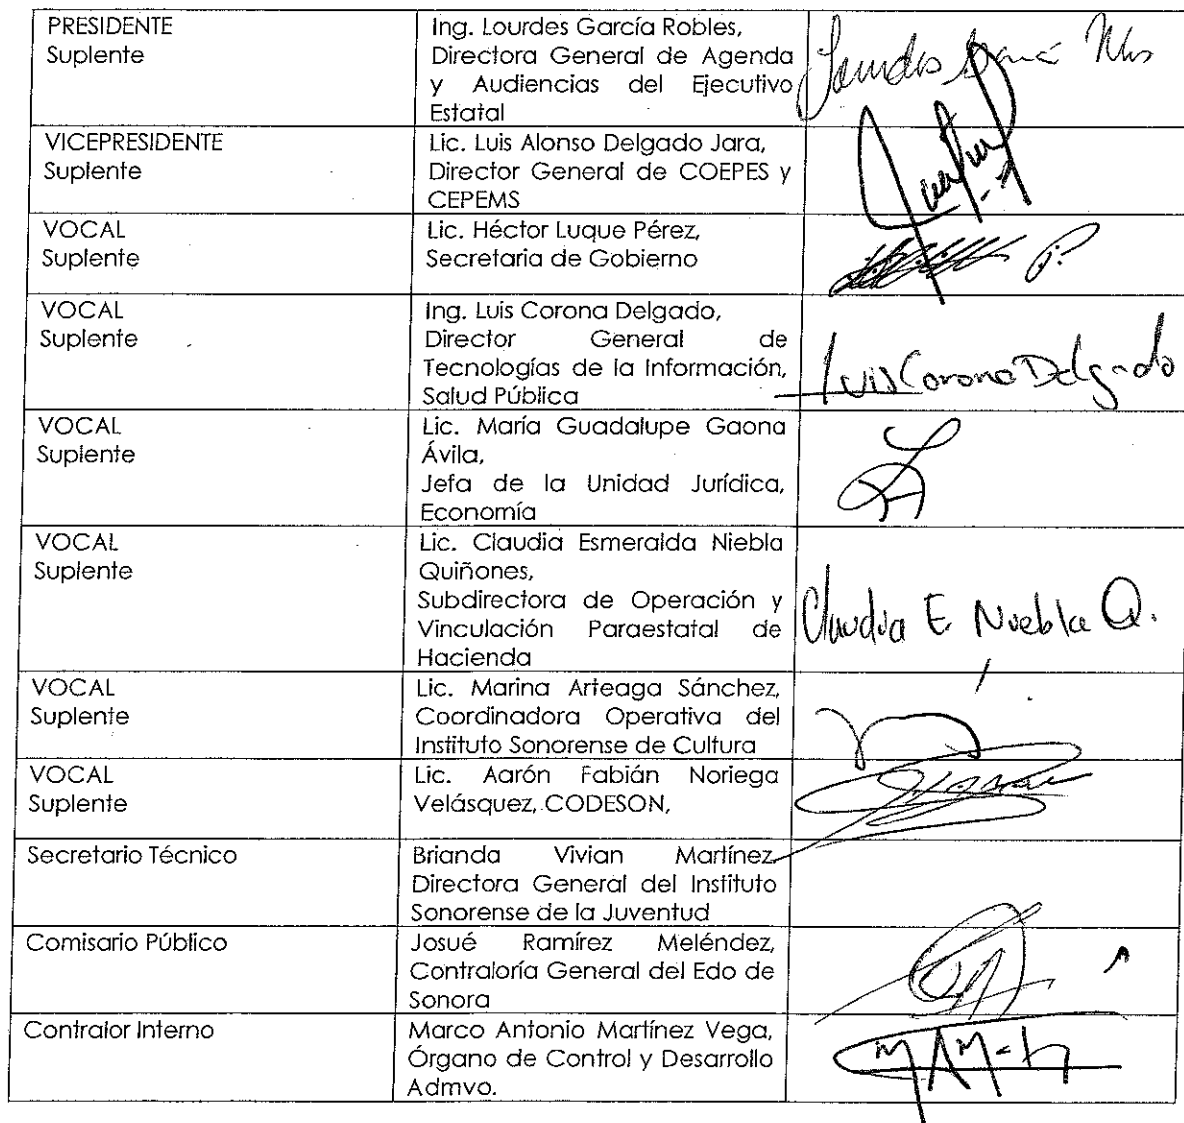 PRESIDENTE
Suplente
Ing. Lourdes García Robles,
Directora General de Agenda
y Audiencias del Ejecutivo
Estatal
Lourdes
VICEPRESIDENTE
Suplente
Lic. Luis Alonso Delgado Jara,
Director General de COEPES y
CEPEMS
VOCAL
Suplente
Lic. Héctor Luque Pérez,
Secretaria de Gobierno
P.
VOCAL
Suplente
Ing. Luis Corona Delgado,
Director General de
Tecnologías de la Información,
Salud Pública
Luis Corona Delgado
VOCAL
Suplente
Lic. María Guadalupe Gaona
Ávila,
Jefa de la Unidad Jurídica,
Economía
VOCAL
Suplente
Lic. Claudia Esmeralda Niebla
Quiñones,
Subdirectora de Operación y
Vinculación Paraestatal de
Hacienda
Claudia E. Niebla Q.
VOCAL
Suplente
Lic. Marina Arteaga Sánchez,
Coordinadora Operativa del
Instituto Sonorense de Cultura
VOCAL
Suplente
Lic. Aarón Fabián Noriega
Velásquez, CODESON,
Secretario Técnico
Brianda Vivian Martínez
Directora General del Instituto
Sonorense de la Juventud
Comisario Público
Josué Ramírez Meléndez,
Contraloría General del Edo de
Sonora
Contralor Interno
Marco Antonio Martínez Vega,
Órgano de Control y Desarrollo
Admvo.